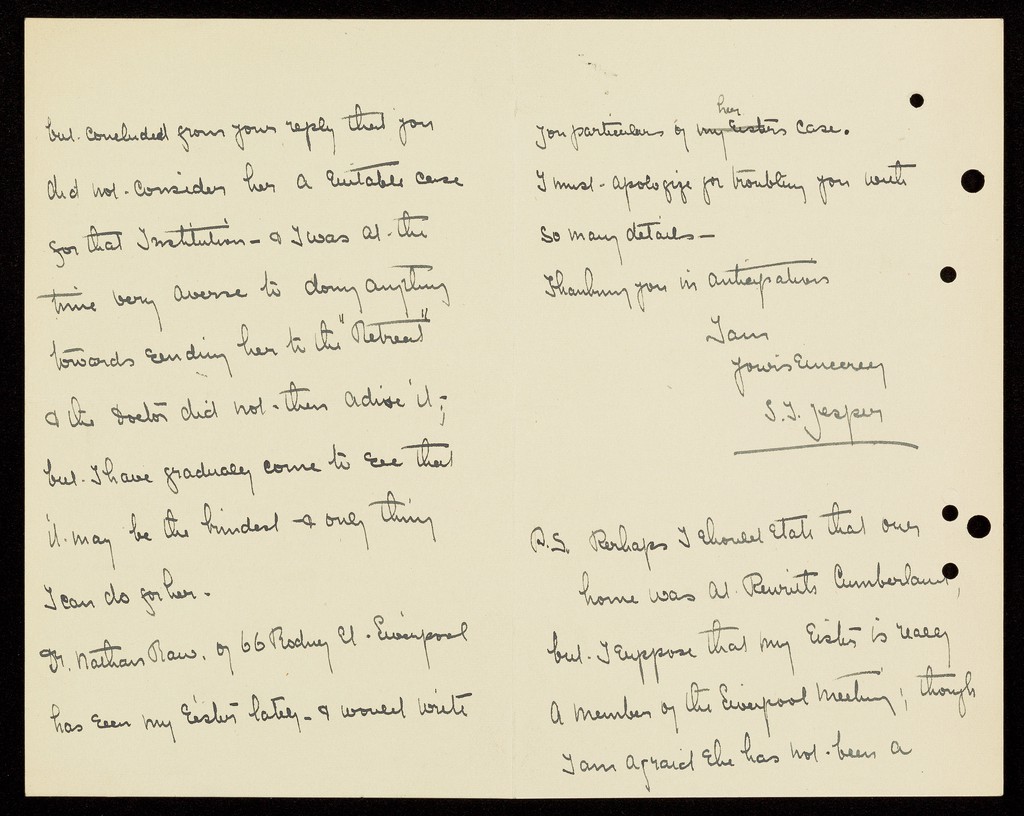 but concluded from your reply that you
did not consider her a suitable case
for that Institution - & I was at the
time very averse to doing anything
towards sending her to the "Retreat"
& the doctor did not then advise it;
but I have gradually come to see that
it may be the kindest & only thing
I can do for her.
Dr. Nathan Raw, of 66 Rodney St. Liverpool
has seen my sister lately - & would write
you particulars of my sisters her case.
I must apologize for troubling you with
so many details -
Thanking you in anticipation
I am
yours sincerely
S. J. Jesper
P.S. Perhaps I should state that our
home was at Cumberland,
but I suppose that my sister is really
a member of the Liverpool Meeting; though
I am afraid she has not been a